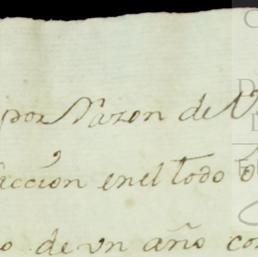 por Razon de
faccion en el todo o
o de vn año con